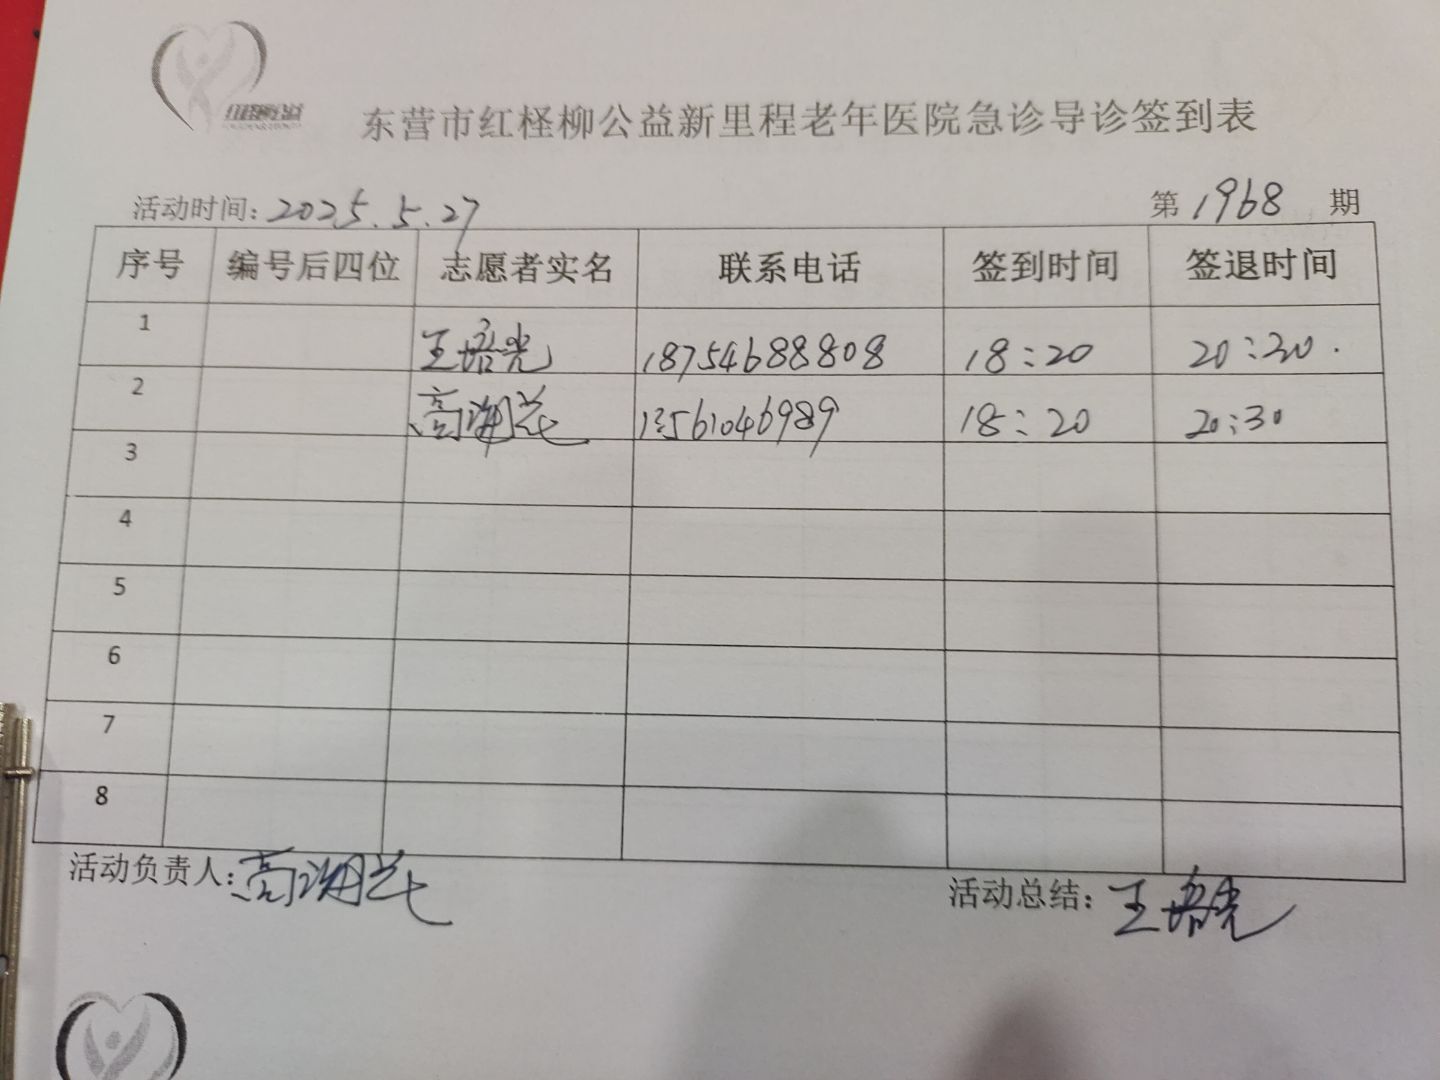 红柽柳公益
东营市红柽柳公益新里程老年医院急诊导诊签到表
活动时间：2025.5.27 第1968期
序号 编号后四位 志愿者实名 联系电话 签到时间 签退时间
1 王培光 18754688808 18:20 20:30.
2 高湘兰 13561046989 18:20 20:30
3
4
5
6
7
8
活动负责人：高湘兰 活动总结：王培光